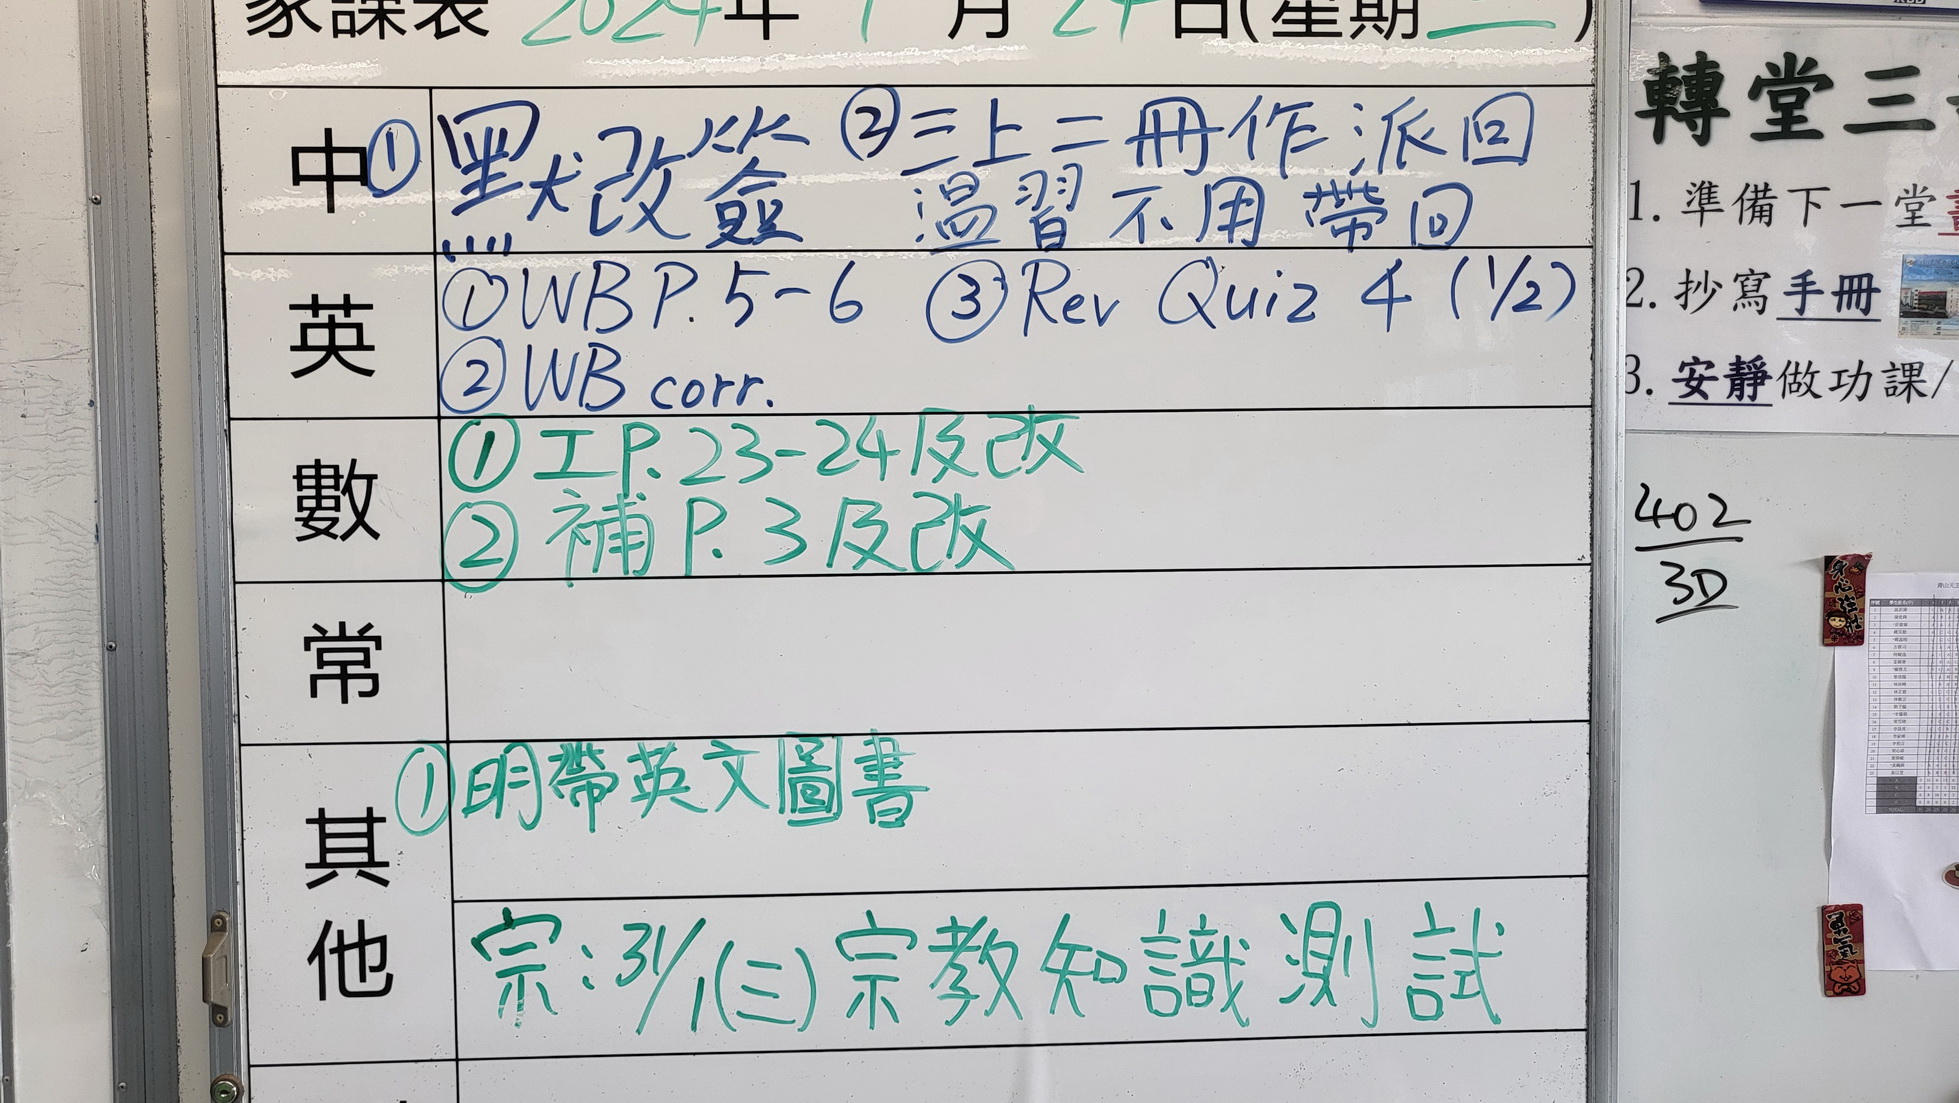 家課表 2024年1月24日(星期三)
中 ①默改簽 ②三上二冊作派回
溫習不用帶回
英 ①WB P.5-6 ③Rev Quiz 4 (1/2)
②WB corr.
數 ①工P.23-24及改
②補P.3及改
常
其他 ①明帶英文圖書
宗:31/1(三)宗教知識測試
轉堂三
1. 準備下一堂
2. 抄寫手冊
3. 安靜做功課/
402
3D